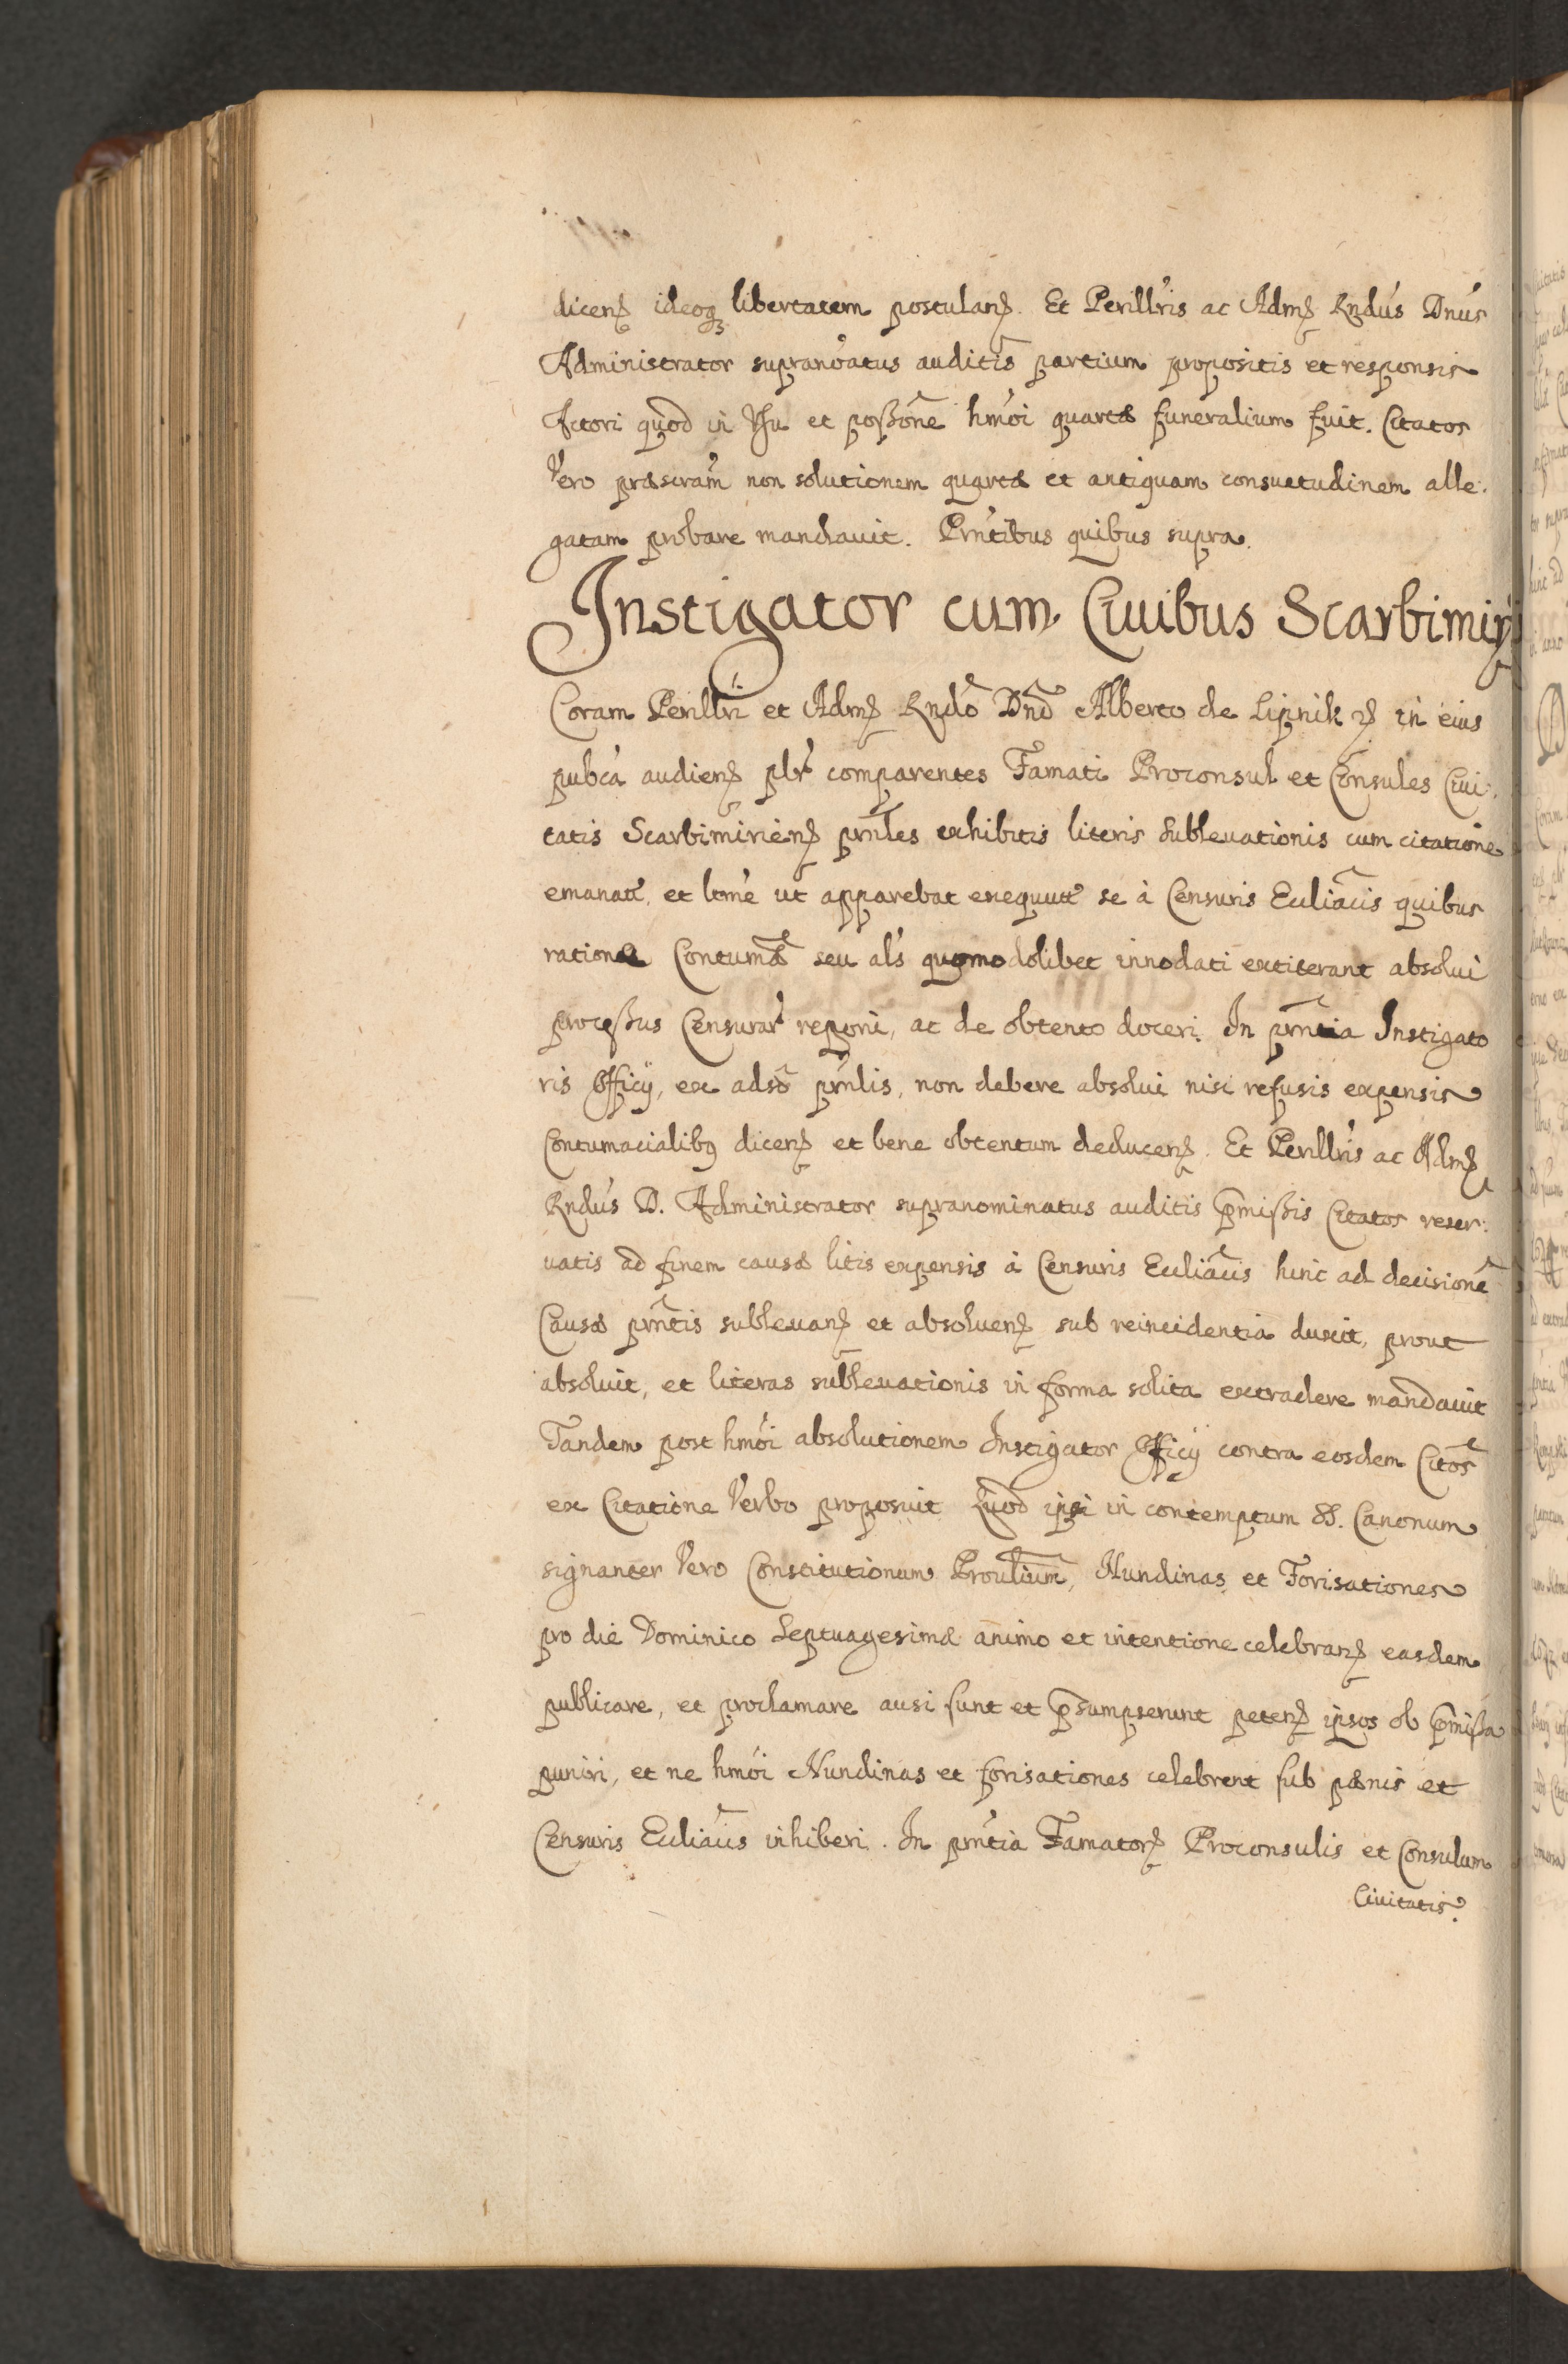 dicen̄ ideoq̃ libertatem postulan̄. Et Perillr̃is ac Adm̄ Rndus Dnus
Administrator supranoatus auditis partium propositis et responsis
Actori quod in Usu et possõne hmõi quartæ funeralium fuit. Citatos
Vero præscram non solutionem quartæ et antiquam consuetudinem alle-
gatam probare mandavit. Prntibus quibus supra.
Instigator cum Civibus Scarbimir̃
Coram Perillri et Adm̄ Rndo Dno Alberto de Lipnik etc̃ in eius
pubca audien̄ plr̃ comparentes Famati Proconsul et Consules Civi-
tatis Scarbimirien̄ prñles exhibitis literis sublevationis cum citatione
emanat̃, et ltme ut apparebat exequut̃ se à Censuris Eccliacis quibus
ratione Contumæ seu als quomodolibet innodati extiterant absolui
processus Censurar̃ reponi, ac de obtento doceri. In prntia Instigato
ris Officÿ, ex adso prñlis, non debere absolui nisi refusis expensis
Contumacialibq dicen̄ et bene obtentum deducen̄. Et Perillris ac Adm̄
Rndus D. Administrator supranominatus auditis p̃missis Citatos reser-
vatis ad finem causæ litis expensis à Censuris Eccliacis hinc ad decisionẽ
Causæ prntis sublevan̄ et absoluen̄ sub reincidentia duxit, prout
absoluit, et literas sublevationis in forma solita extradere mandavit
Tandem post hmõi absolutionem Instigator Officÿ contra eosdem Citos
ex Citatione Verbo proposuit Quod ipsi in contemptum SS. Canonum
signanter Vero Constitutionum Proulium, Nundinas et Forisationes
pro die Dominico Septuagesimæ animo et intentione celebran̄ easdem
publicare, et proclamare ausi sunt et p̃sumpserunt peten̄ ipsos ob p̃missa
puniri, et ne hmõi Nundinas et forisationes celebrent sub pænis et
Censuris Eccliacis inhiberi. In prntia Famator̄ Proconsulis et Consulum
Civitatis.